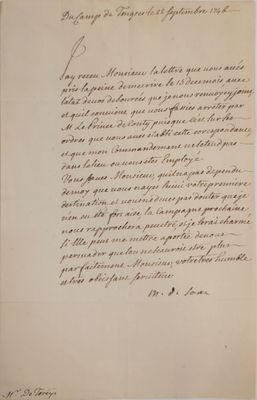 Du Camp de Tongres le 22 Septembre 1746
J'ay receu Monsieur la lettre que vous avés
pris la peine de m'ecrire le 15 de ce mois avec
l'etat de vos debourcés que je vous renvoy cy joint,
et qu'il convient que vous fassiés arreter par
M. Le Prince de Conty puisque c'est sur ses
ordres que vous avés etabli cette correspondance,
et que mon Commandement ne s'etend pas
dans le lieu ou vous etes Employé
Vous savés Monsieur, qu'il n'a pas dependu
de moy que vous n'ayés suivi votre premiere
destination et vous ne devés pas douter que je
n'en eu eté fort aise, la Campagne prochaine
nous raprochera peut etre, et je serai charmé
si Elle peut me metre a portée de vous
persuader que l'on ne sauroit etre plus
parfaitement, Monsieur, votre tres humble
et tres obeissant serviteur
M. de Saxe
Mr. De